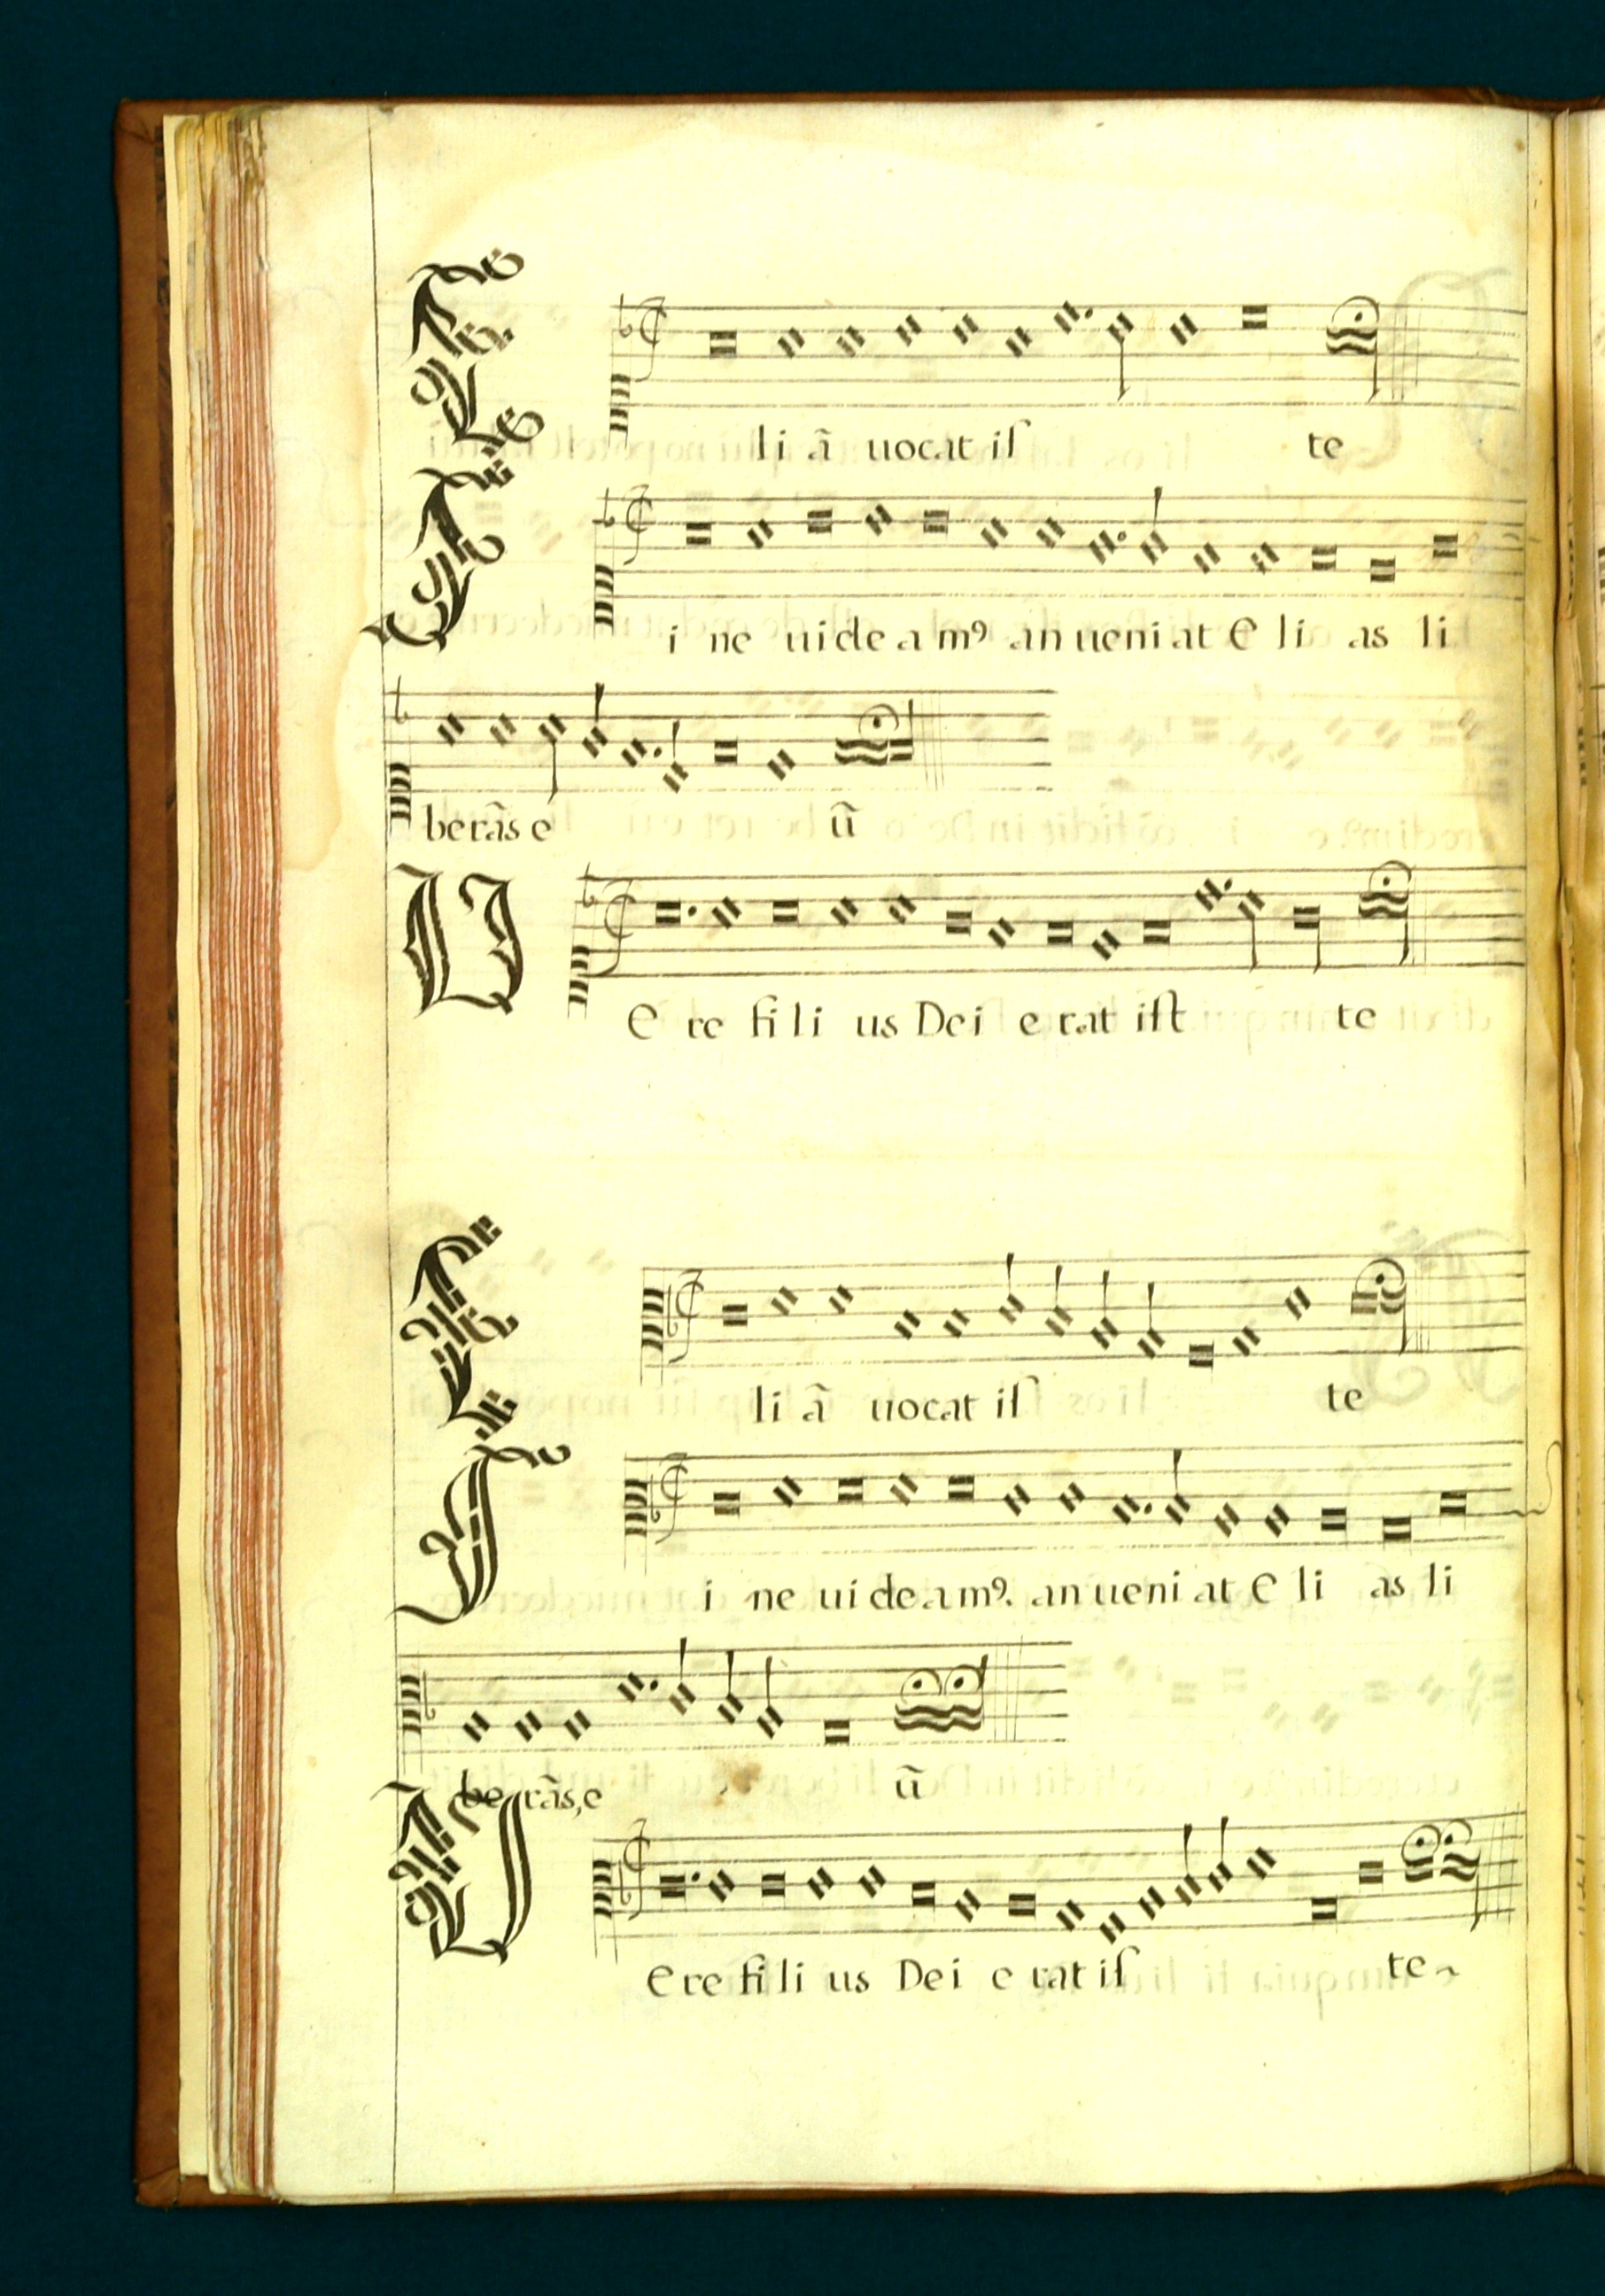 E li ā uocat iſ te
S i ne uide a mꝰ an ueni at E li as li
be rās e ū
U E re fi li us Dei e rat iſt te
E li ā uocat iſ te
S i ne ui de a mꝰ. an ueni at E li as li
be rās, e ū
U E re fi li us Dei e rat iſ te